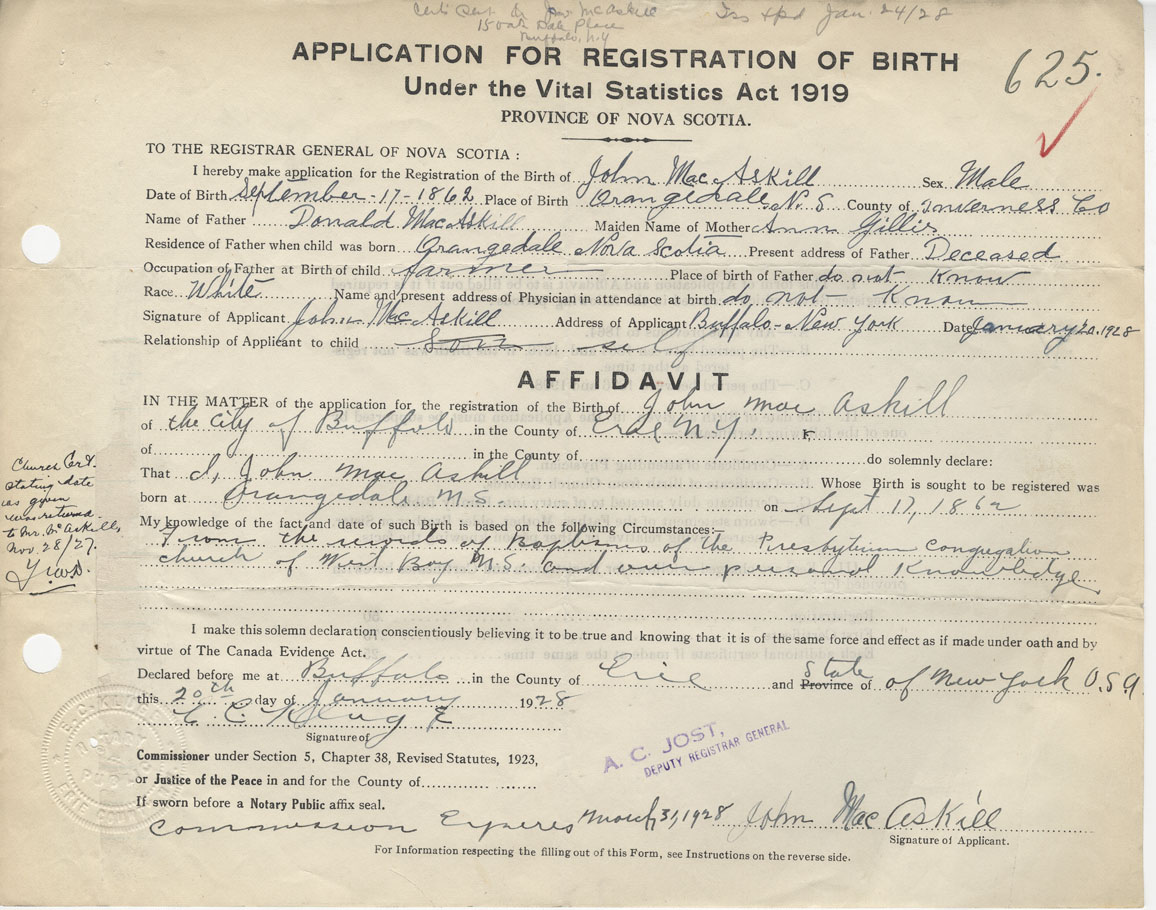 Certi Sent to Jno McAskill Trs Hpd Jan. 24/28
15 Oak Dale Place
Buffalo, N.Y
APPLICATION FOR REGISTRATION OF BIRTH
625.
Under the Vital Statistics Act 1919
PROVINCE OF NOVA SCOTIA.
TO THE REGISTRAR GENERAL OF NOVA SCOTIA :
I hereby make application for the Registration of the Birth of John MacAskill Sex Male
Date of Birth September-17-1862 Place of Birth Orangedale N. S County of Inverness Co
Name of Father Donald MacAskill Maiden Name of Mother Ann Gillis
Residence of Father when child was born Orangedale Nova Scotia Present address of Father Deceased
Occupation of Father at Birth of child farmer Place of birth of Father do not Know
Race White Name and present address of Physician in attendance at birth do not Know
Signature of Applicant John MacAskill Address of Applicant Buffalo-New York Date January 20. 1928
Relationship of Applicant to child Son self
AFFIDAVIT
IN THE MATTER of the application for the registration of the Birth of John Mac Askill
of the City of Buffalo in the County of Erie N.Y.
of in the County of do solemnly declare:
That I, John Mac Askill Whose Birth is sought to be registered was
born at Orangedale N.S. on Sept 17, 1862
My knowledge of the fact and date of such Birth is based on the following Circumstances:—
From the records of Baptisms of the Presbyterian Congregation
church of West Bay N.S. and own personal Knowledge
Church Cert.
stating date
as given
was returned
to Mr. McAskill,
Nov. 28/27.
I make this solemn declaration conscientiously believing it to be true and knowing that it is of the same force and effect as if made under oath and by
virtue of The Canada Evidence Act.
Declared before me at Buffalo in the County of Erie and Province State of of New York U.S.A
this 20th day of January 1928
E. C. Kluge
Signature of
Commissioner under Section 5, Chapter 38, Revised Statutes, 1923,
or Justice of the Peace in and for the County of
If sworn before a Notary Public affix seal.
A. C. JOST,
DEPUTY REGISTRAR GENERAL
Commission Expires March 31, 1928 John MacAskill
Signature of Applicant.
For Information respecting the filling out of this Form, see Instructions on the reverse side.